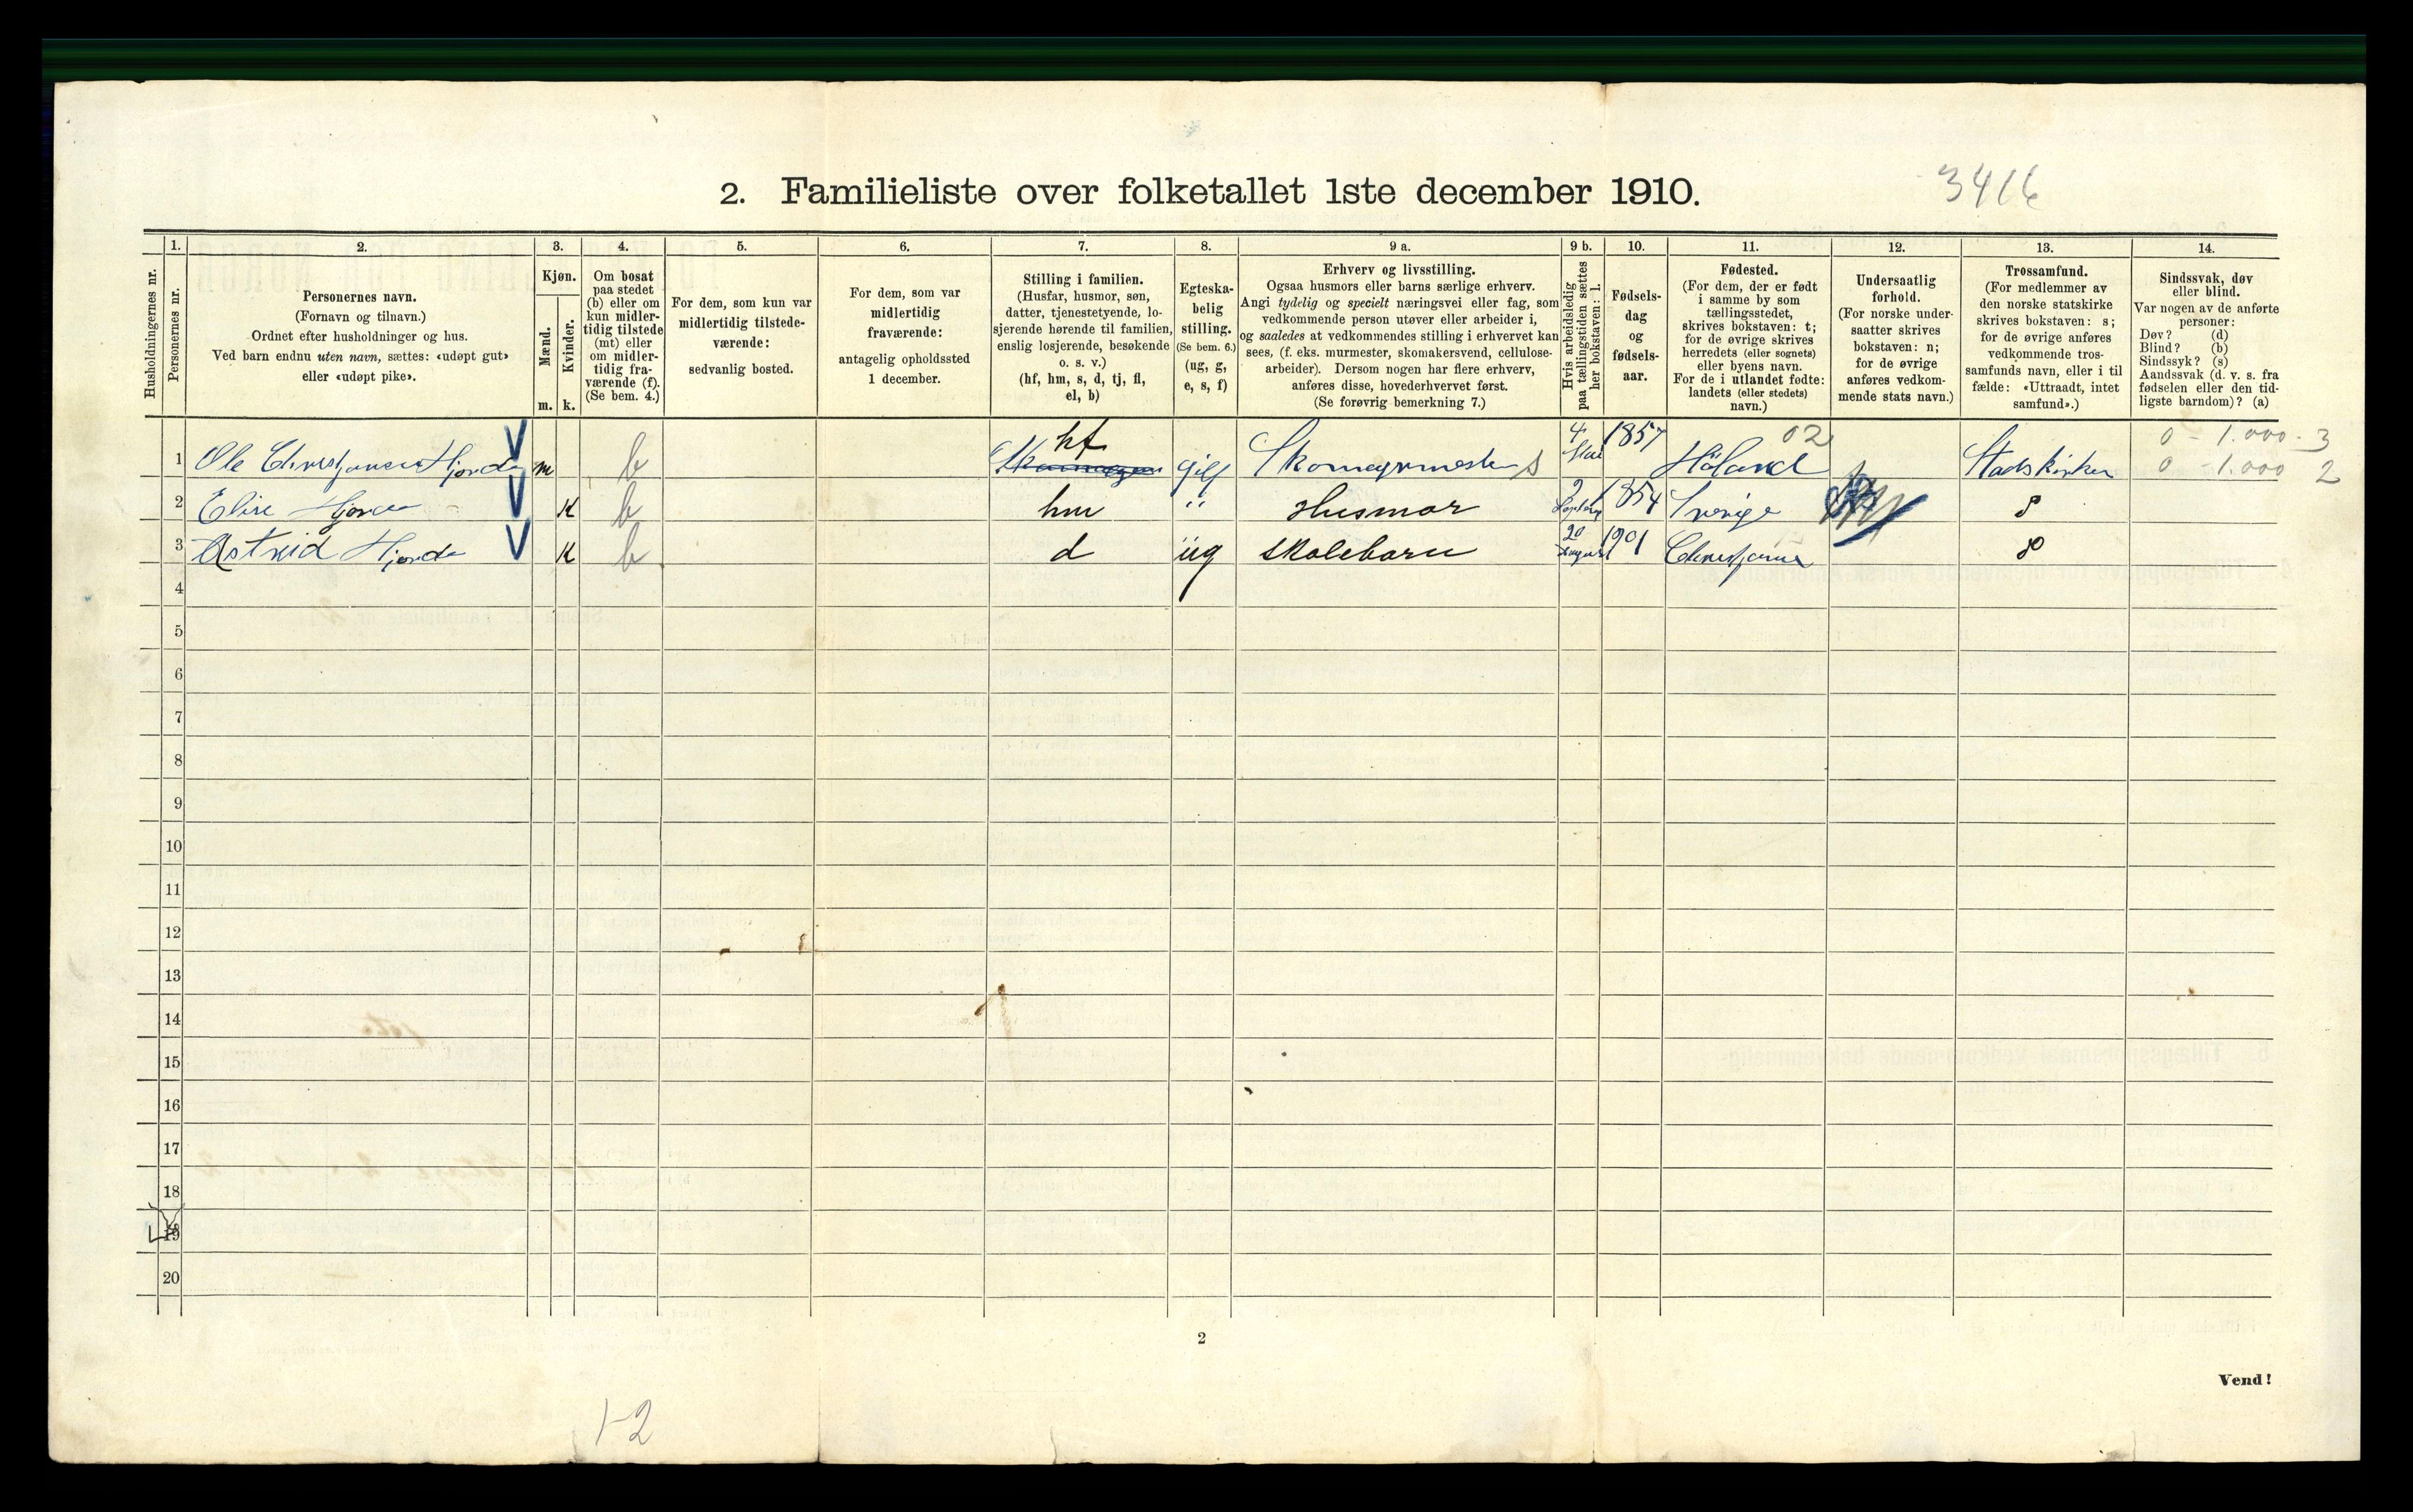 3416
2. Familieliste over folketallet 1ste december 1910.
Husholdningernes nr.
1.
Personernes nr.
2.
Personernes navn.
(Fornavn og tilnavn.)
Ordnet efter husholdninger og hus.
Ved barn endnu uten navn, sættes: «udøpt gut»
eller «udøpt pike».
3.
Kjøn.
Mænd.
m.
Kvinder.
k.
4.
Om bosat
paa stedet
(b) eller om
kun midler-
tidig tilstede
(mt) eller
om midler-
tidig fra-
værende (f).
(Se bem. 4.)
5.
For dem, som kun var
midlertidig tilstede-
værende:
sedvanlig bosted.
6.
For dem, som var
midlertidig
fraværende:
antagelig opholdssted
1 december.
7.
Stilling i familien.
(Husfar, husmor, søn,
datter, tjenestetyende, lo-
sjerende hørende til familien,
enslig losjerende, besøkende
o. s. v.)
(hf, hm, s, d, tj, fl,
el, b)
8.
Egteska-
belig
stilling.
(Se bem. 6.)
(ug, g,
e, s, f)
9 a.
Erhverv og livsstilling.
Ogsaa husmors eller barns særlige erhverv.
Angi tydelig og specielt næringsvei eller fag, som
vedkommende person utøver eller arbeider i,
og saaledes at vedkommendes stilling i erhvervet kan
sees, (f. eks. murmester, skomakersvend, cellulose-
arbeider). Dersom nogen har flere erhverv,
anføres disse, hovederhvervet først.
(Se forøvrig bemerkning 7.)
9 b.
Hvis arbeidsledig
paa tællingstiden sættes
her bokstaven: l.
10.
Fødsels-
dag
og
fødsels-
aar.
11.
Fødested.
(For dem, der er født
i samme by som
tællingsstedet,
skrives bokstaven: t;
for de øvrige skrives
herredets (eller sognets)
eller byens navn.
For de i utlandet fødte:
landets (eller stedets)
navn.)
12.
Undersaatlig
forhold.
(For norske under-
saatter skrives
bokstaven: n;
for de øvrige
anføres vedkom-
mende stats navn.)
13.
Trossamfund.
(For medlemmer av
den norske statskirke
skrives bokstaven: s;
for de øvrige anføres
vedkommende tros-
samfunds navn, eller i til
fælde: «Uttraadt, intet
samfund».)
14.
Sindssvak, døv
eller blind.
Var nogen av de anførte
personer:
Døv? (d)
Blind? (b)
Sindssyk? (s)
Aandssvak (d. v. s. fra
fødselen eller den tid-
ligste barndom)? (a)
02 0 - 1.000 - 3
1 Ole Christjansen Hjorde V m b hf gift s 4 1857 Høland Stadskirken 0 - 1.000 2
2 Elise V K b hm " Husmor 2 1854 Sverige s
3 Astrid Hjorde V K b d ug Skolebarn 20 August 1901 s
4
5
6
7
8
9
10
11
12
13
14
15
16
17
18
19
20
2
Vend!
1-2